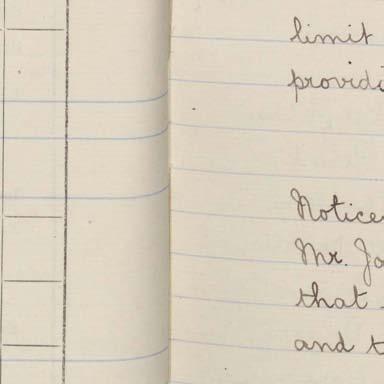 limit
provid
Notice
Mr. Jo
that
and t